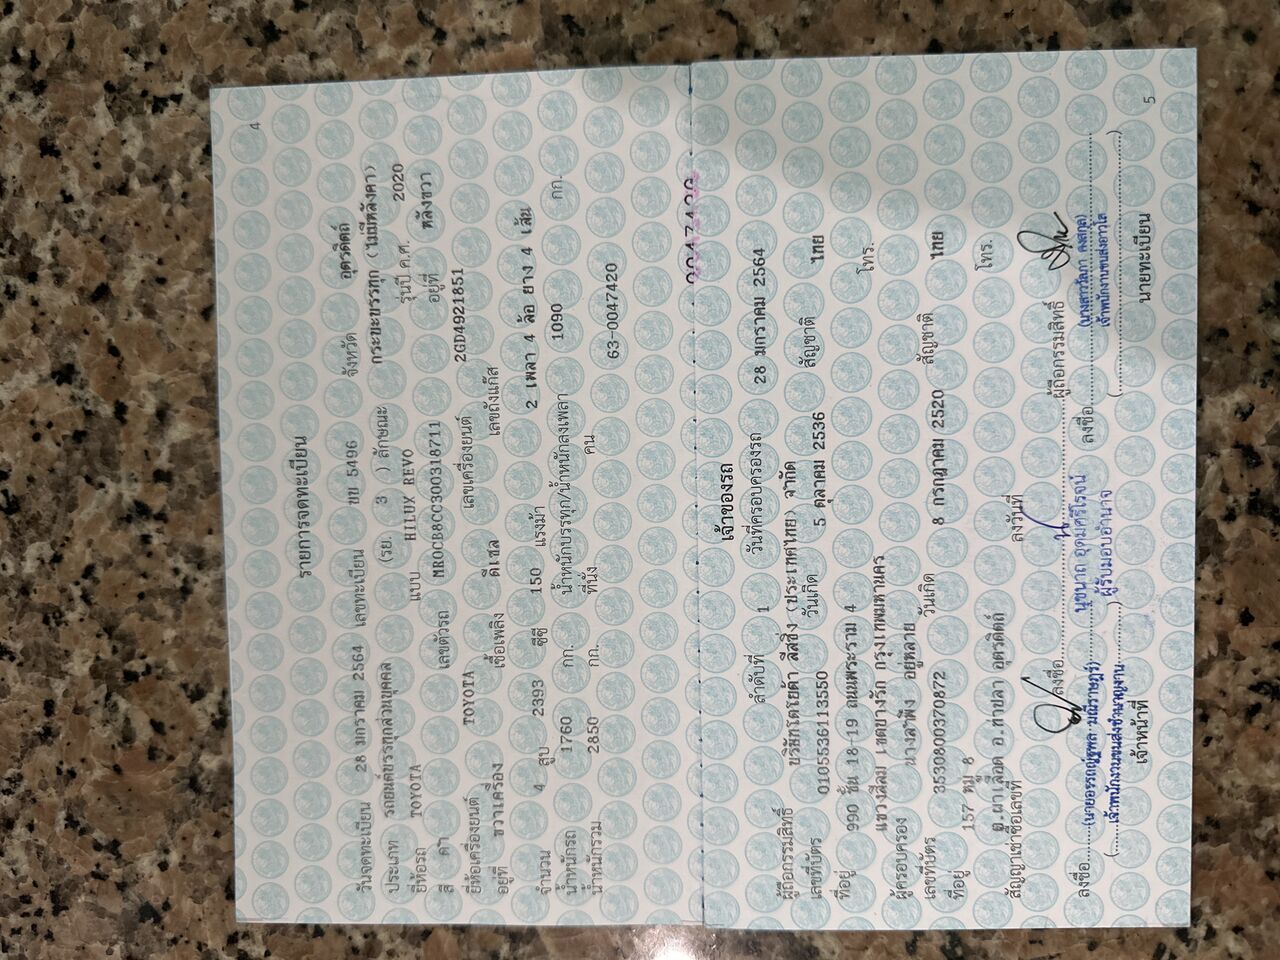 4
รายการจดทะเบียน
วันจดทะเบียน 28 มกราคม 2564 เลขทะเบียน บท 5496 จังหวัด อุตรดิตถ์
ประเภท รถยนต์บรรทุกส่วนบุคคล (รย. 3 ) ลักษณะ กระบะบรรทุก (ไม่มีหลังคา)
ยี่ห้อรถ TOYOTA แบบ HILUX REVO รุ่นปี ค.ศ. 2020
สี ดำ เลขตัวรถ MR0CB8CC300318711 อยู่ที่ หลังขวา
ยี่ห้อเครื่องยนต์ TOYOTA เลขเครื่องยนต์ 2GD4921851
อยู่ที่ ขวาเครื่อง เชื้อเพลิง ดีเซล เลขถังแก๊ส
จำนวน 4 สูบ 2393 ซีซี 150 แรงม้า 2 เพลา 4 ล้อ ยาง 4 เส้น
น้ำหนักรถ 1760 กก. น้ำหนักบรรทุก/น้ำหนักลงเพลา 1090 กก.
น้ำหนักรวม 2850 กก. ที่นั่ง คน 63-0047420
เจ้าของรถ
ลำดับที่ 1 วันที่ครอบครองรถ 28 มกราคม 2564
ผู้ถือกรรมสิทธิ์ บริษัทโตโยต้า ลีสซิ่ง (ประเทศไทย) จำกัด
เลขที่บัตร 0105536113550 วันเกิด 5 ตุลาคม 2536 สัญชาติ ไทย
ที่อยู่ 990 ชั้น 18-19 ถนนพระราม 4 โทร.
แขวงสีลม เขตบางรัก กรุงเทพมหานคร
ผู้ครอบครอง นางลำพึง อยู่หลาย
เลขที่บัตร 3530800370872 วันเกิด 8 กรกฎาคม 2520 สัญชาติ ไทย
ที่อยู่ 157 หมู่ 8 โทร.
ต.ผาเลือด อ.ท่าปลา อุตรดิตถ์
สัญญาเช่าซื้อเลขที่ ลงวันที่
ลงชื่อ ผู้ถือกรรมสิทธิ์
นุชนาถ อุดมศรีโรจน์
ผู้รับมอบอำนาจ
ลงชื่อ ลงชื่อ
เจ้าพนักงานขนส่งชำนาญงาน
เจ้าพนักงานขนส่งอาวุโส
เจ้าหน้าที่ นายทะเบียน
5